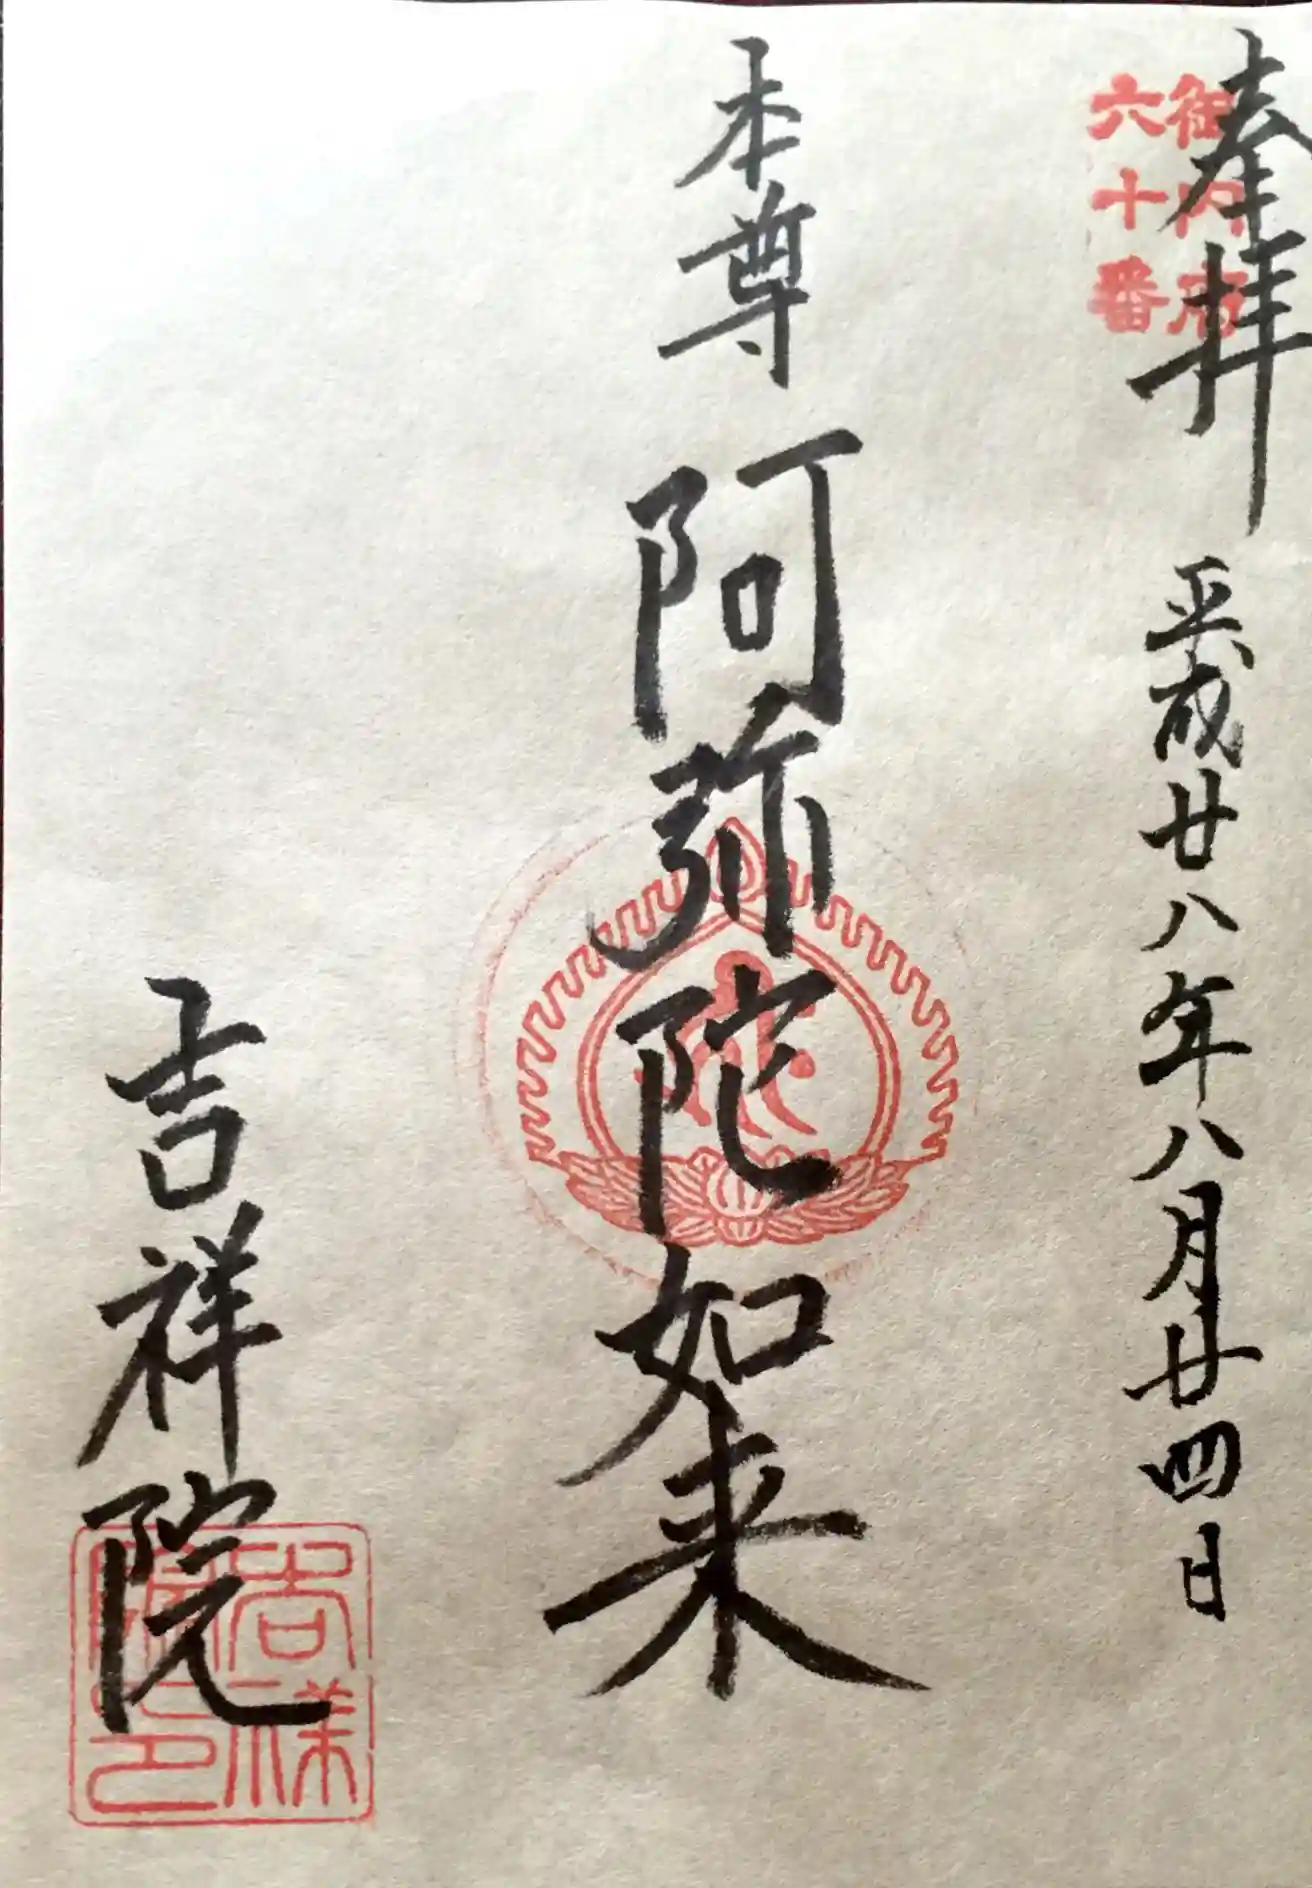 奉拝
平成廿八年八月廿四日
御府内
六十番
本尊
阿弥陀如来
吉祥院
吉祥
院印